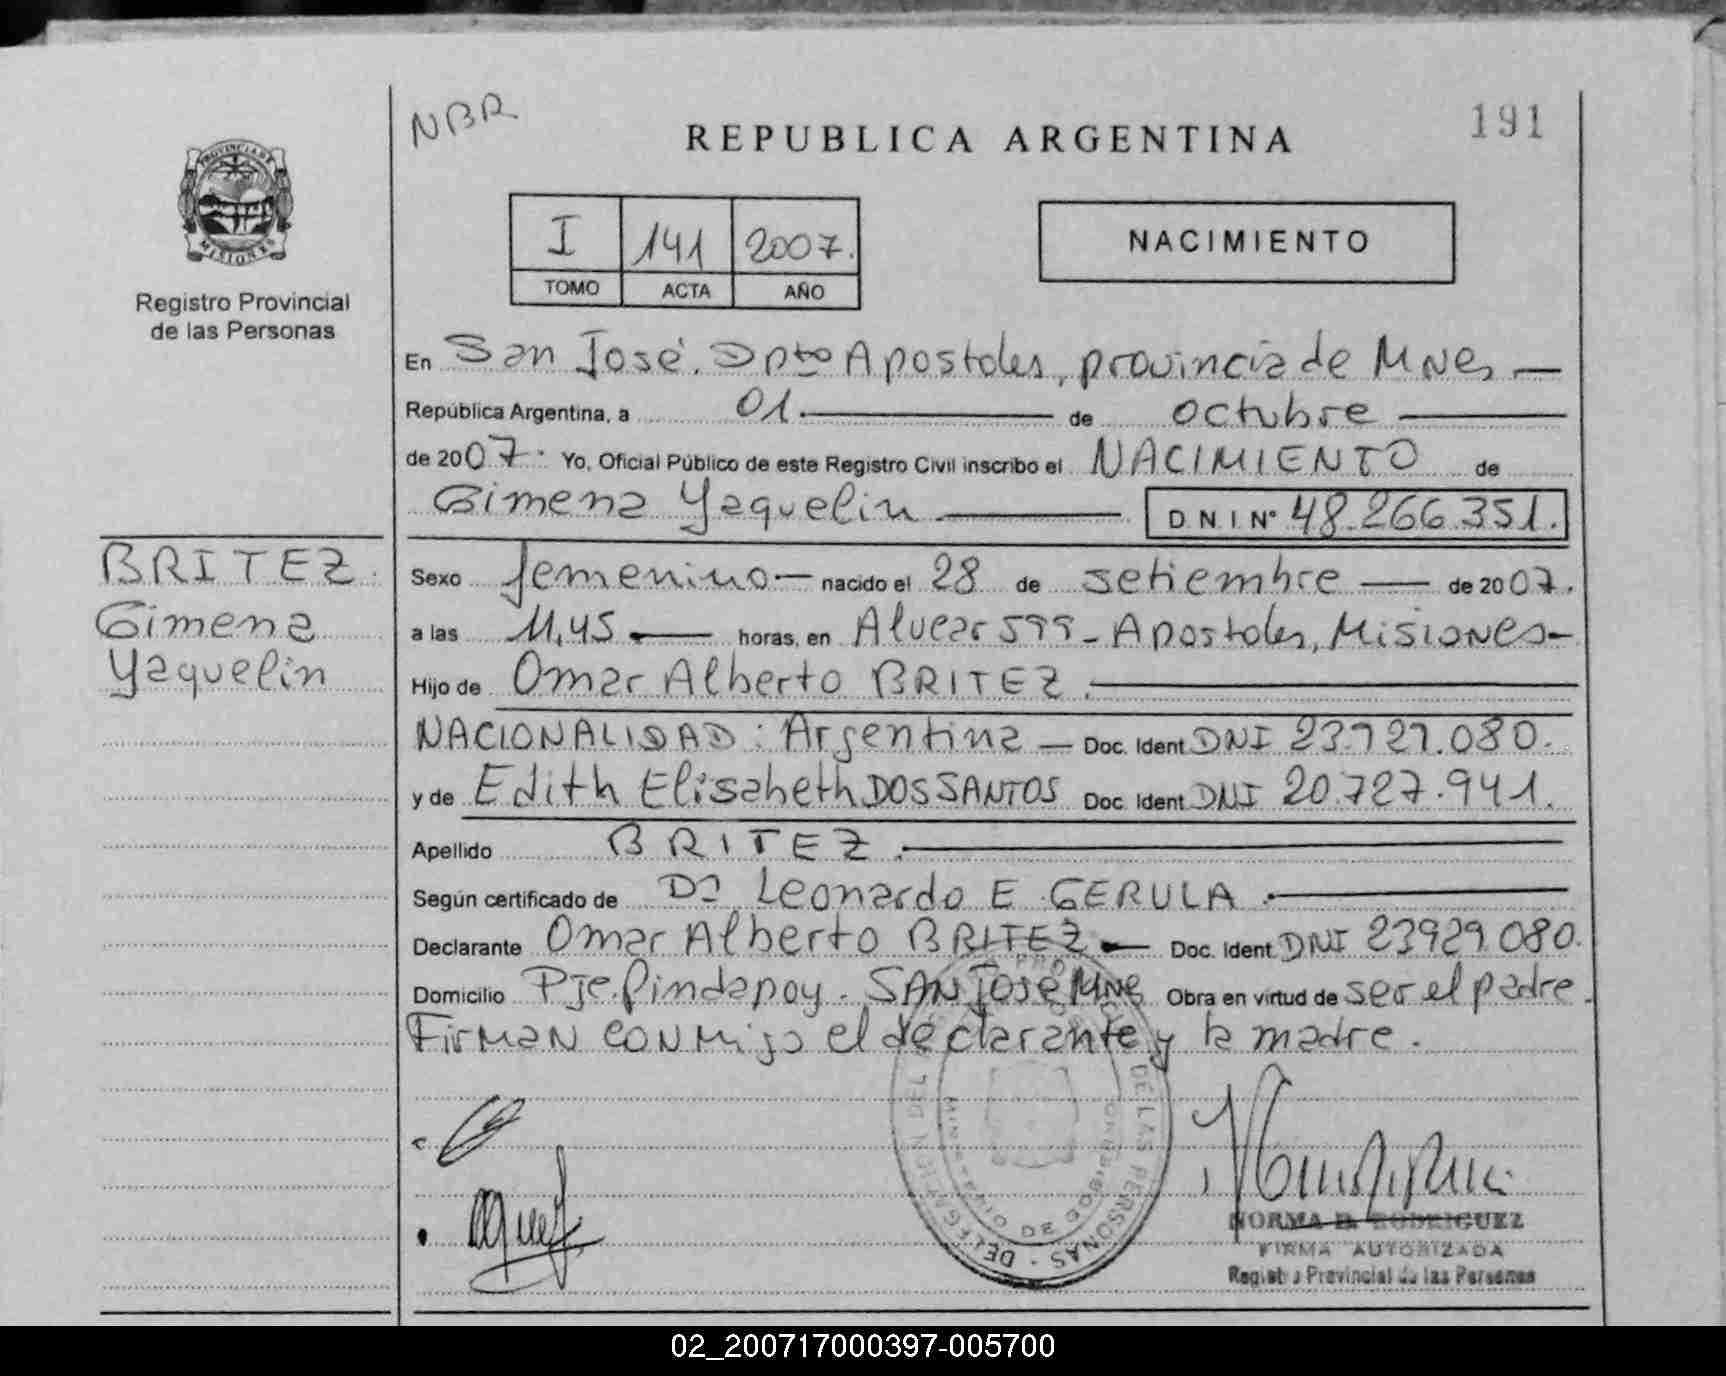 NBR
REPUBLICA ARGENTINA
191
PROVINCIA DE
MISIONES
Registro Provincial
de las Personas
I 141 2007.
TOMO ACTA AÑO
NACIMIENTO
En San José. Dpto Apostoles, provincia de Mnes
República Argentina, a 01. de octubre
de 2007. Yo, Oficial Público de este Registro Civil inscribo el NACIMIENTO de
Gimena Yaquelin D.N.I. Nº 48.266.351.
BRITEZ.
Gimena
Yaquelin
Sexo femenino nacido el 28 de setiembre de 2007.
a las 11,45 horas, en Alvear 599 - Apostoles, Misiones-
Hijo de Omar Alberto BRITEZ.
NACIONALIDAD: Argentina Doc. Ident DNI 23.929.080.
y de Edith Elisabeth DOS SANTOS Doc. Ident DNI 20.727.941.
Apellido BRITEZ.
Según certificado de Dr Leonardo E GERULA.
Declarante Omar Alberto BRITEZ Doc. Ident DNI 23929.080.
Domicilio Pje. Pindapoy. SAN José Mnes Obra en virtud de ser el padre.
Firman conmigo el declarante y la madre.
DE LAS PERSONAS - DELEGACION
MINISTERIO DE GOBIERNO
NORMA B. RODRIGUEZ
FIRMA AUTORIZADA
Registro Provincial de las Personas
02_200717000397-005700